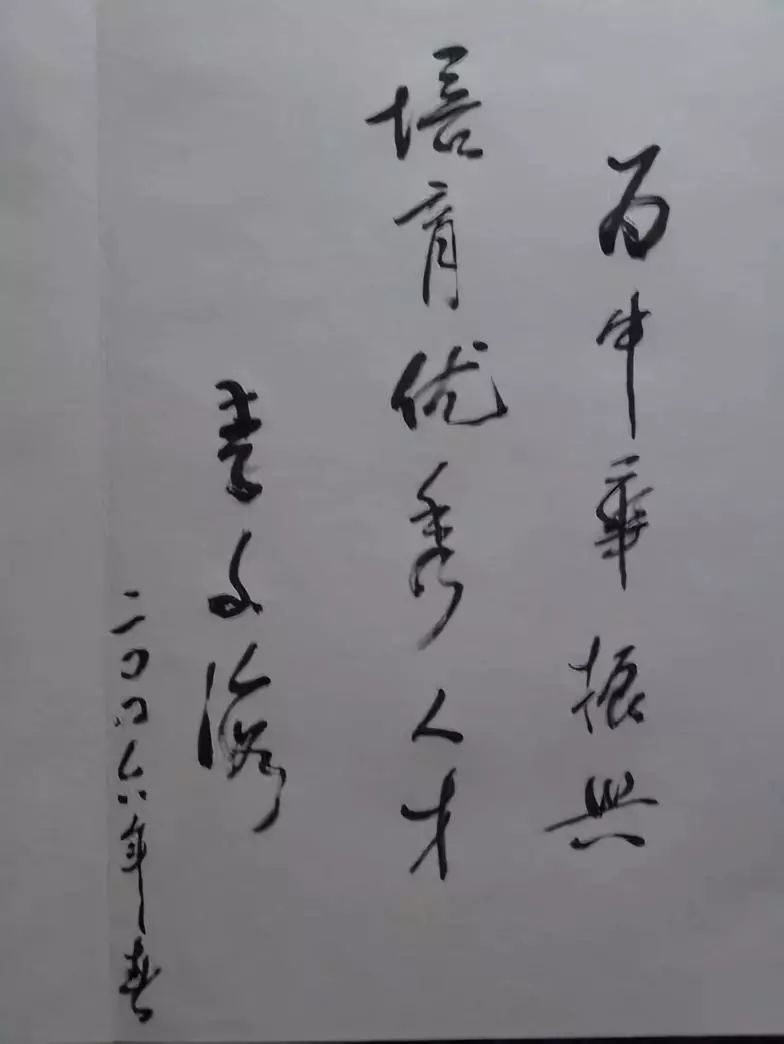 为中华振兴
培育优秀人才
李文海
二〇〇六年春